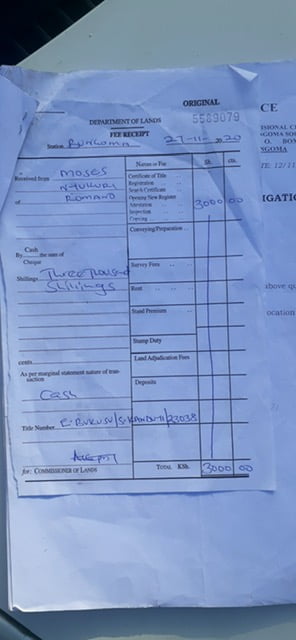 ORIGINAL
DEPARTMENT OF LANDS 5589079
FEE RECEIPT
Station BUNGOMA 27-11-2020
Nature of Fee Sh. cts.
Received from MOSES
Certificate of Title
Registration
Search Certificate
Opening New Register
of ROMANO
Attestation 3000 00
Inspection
Copying
Conveying/Preparation
Cash
By the sum of
Cheque
Survey Fees
Shillings Three Thousand
Shillings
Rent
Stand Premium
Stamp Duty
cents
Land Adjudication Fees
As per marginal statement nature of tran-
saction
Deposits
Cash
Title Number E. BUKUSU/S. KANDUYI/23038
for: COMMISSIONER OF LANDS
TOTAL KSh. 3000 00
CE
O. BOX
TE: 12/11
above